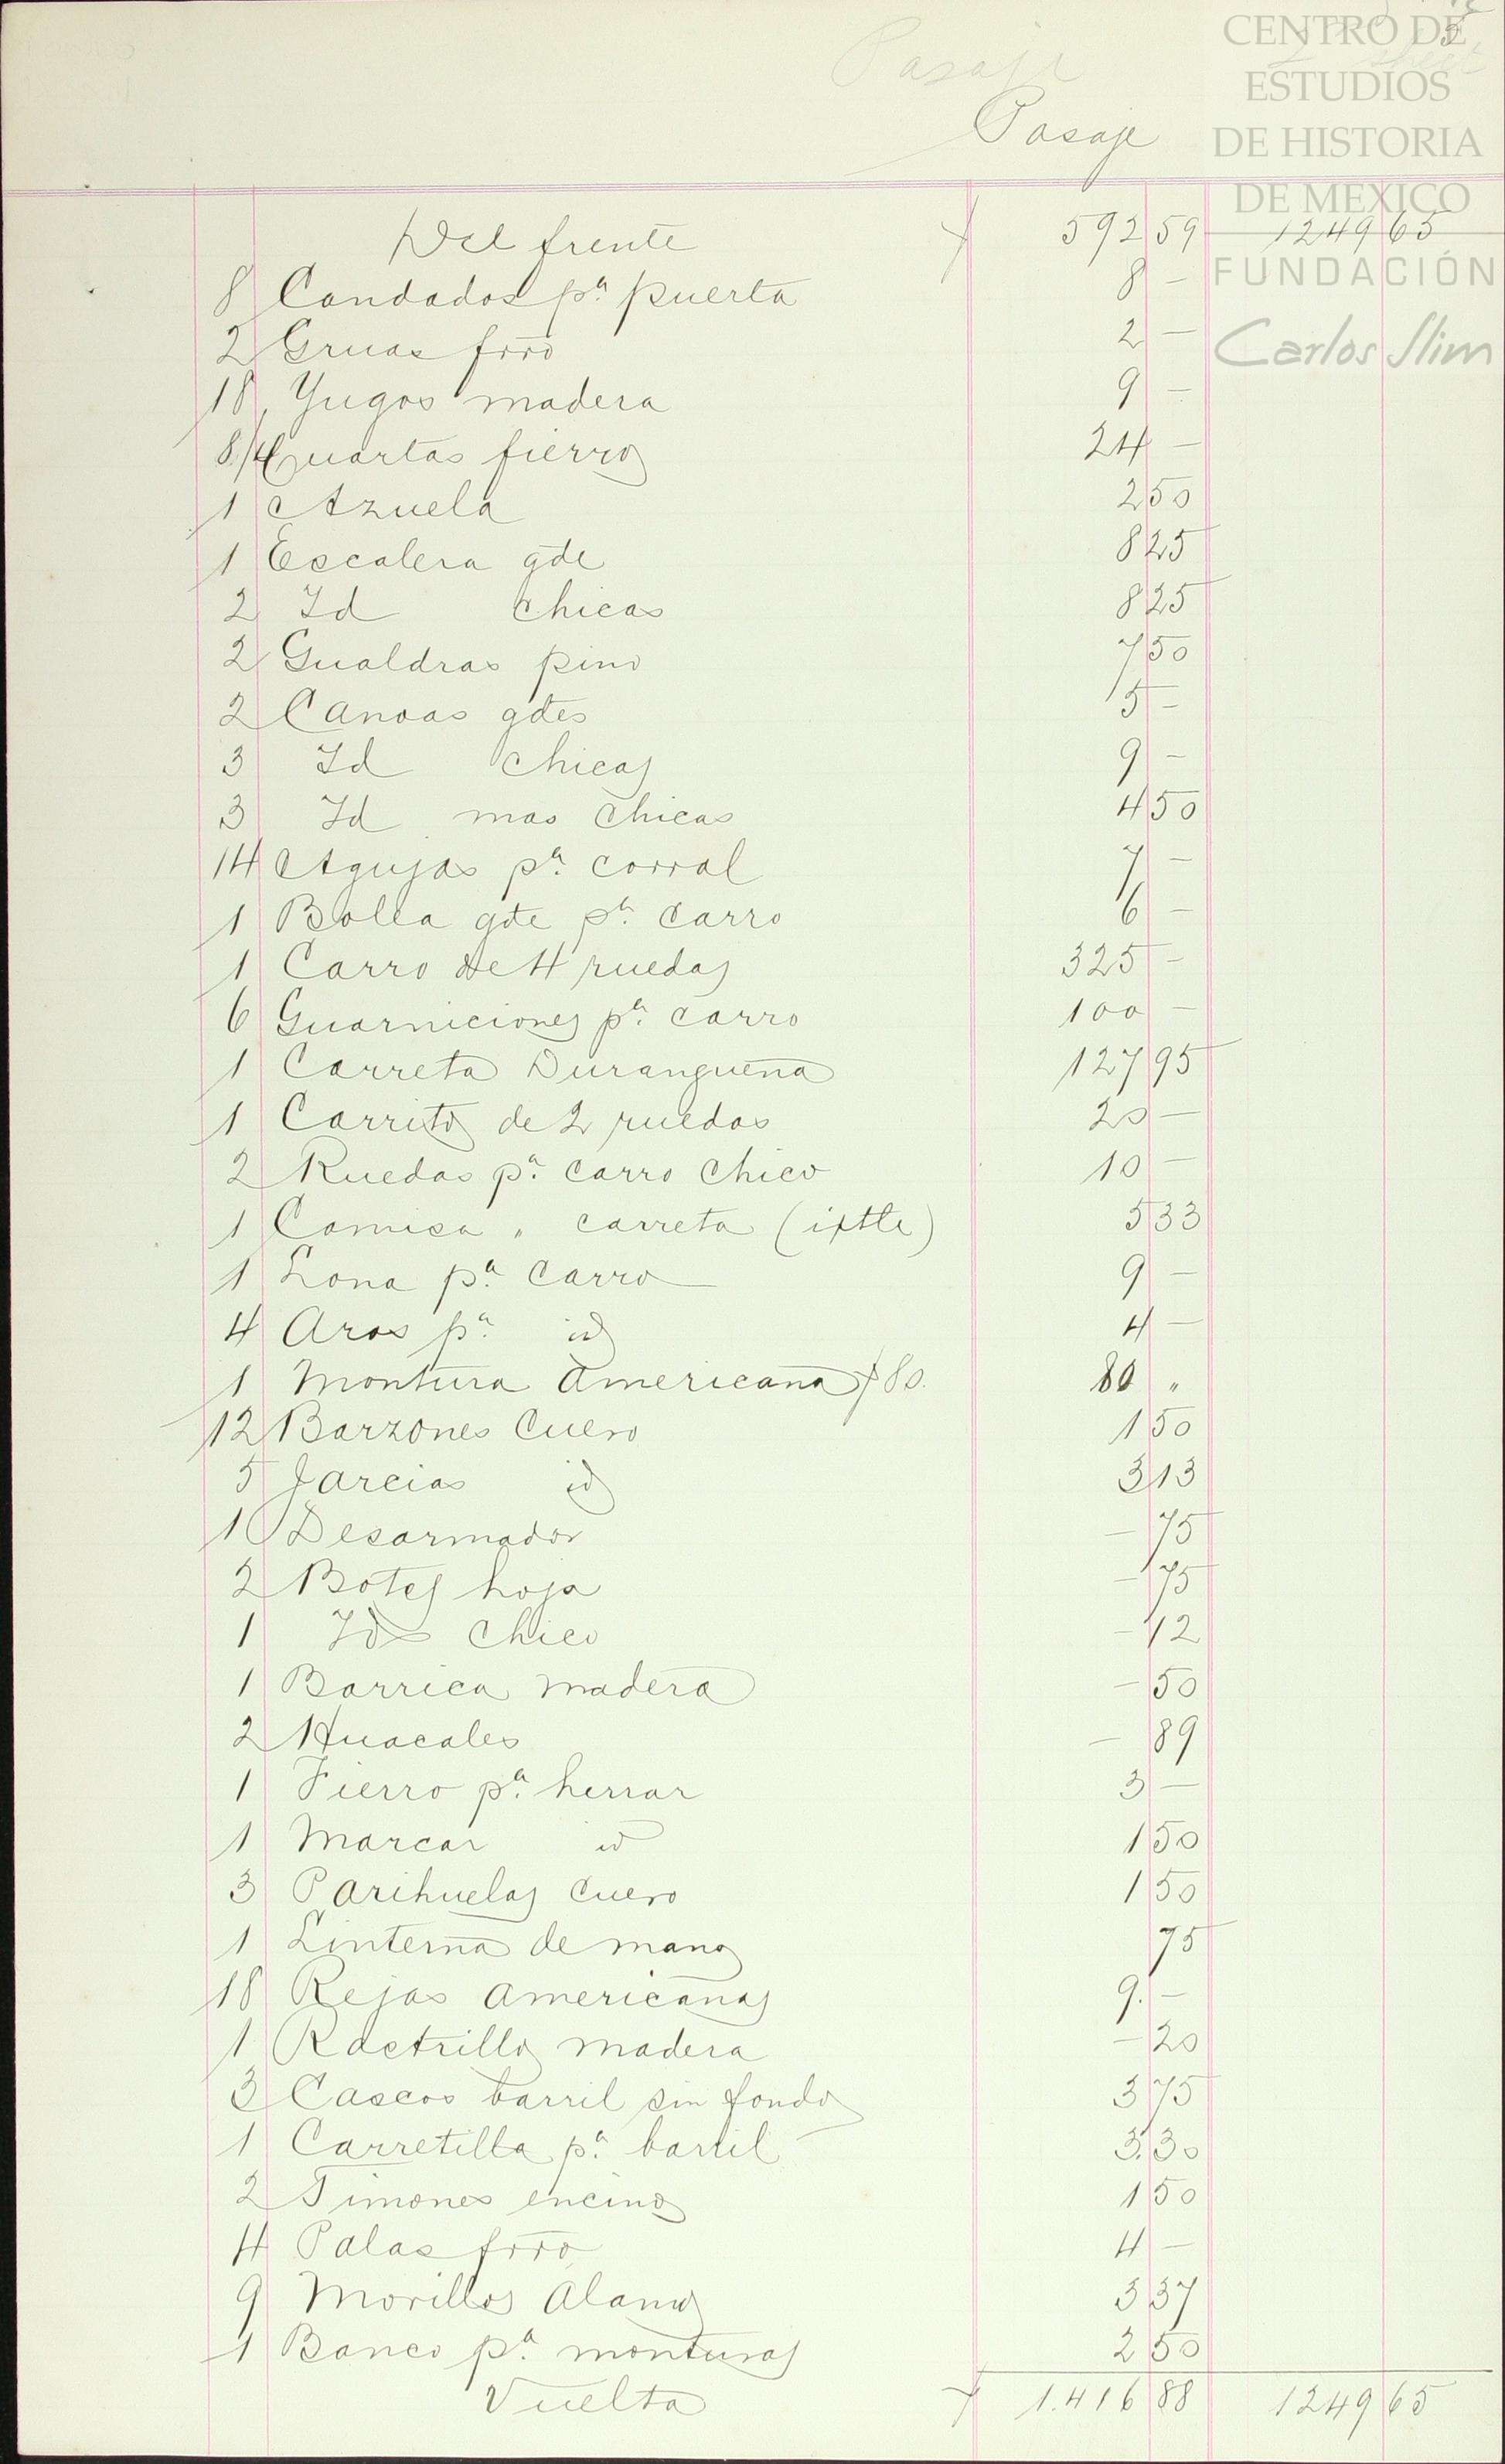 Pasaje
Pasaje
CENTRO DE
ESTUDIOS
DE HISTORIA
DE MEXICO
FUNDACIÓN
Carlos Slim
5
Del frente 592 59 1249 65
8 Candados pª puerta 8 -
2 Gruas frro 2 -
18 Yugos madera 9 -
8/4 Cuartas fierro 24 -
1 Azuela 2 50
1 Escalera gde 8 25
2 Id chicas 8 25
2 Gualdras pino 7 50
2 Canoas gdes 5 -
3 Id chicas 9 -
3 Id mas chicas 4 50
14 Agujas pª corral 7 -
1 Bolea gde pª carro 6 -
1 Carro de 4 ruedas 325 -
6 Guarniciones pª carro 100 -
1 Carreta Durangueña 127 95
1 Carrito de 2 ruedas 20 -
2 Ruedas pª carro chico 10 -
1 Camisa " carreta (ixtle) 5 33
1 Lona pª carro 9 -
4 Aros pª id 4 -
1 Montura Americana 80. 80 "
12 Barzones cuero 1 50
5 Jarcias id 3 13
1 Desarmador - 75
2 Botes hoja - 75
1 Id chico - 12
1 Barrica madera - 50
2 Huacales - 89
1 Fierro pª herrar 3 -
1 Marcar id 1 50
3 Parihuelas cuero 1 50
1 Linterna de mano 75
18 Rejas americanas 9. -
1 Rastrillo madera - 20
3 Cascos barril sin fondo 3 75
1 Carretilla pª barril 3. 30
2 Timones encino 1 50
4 Palas frro 4 -
9 Morillos alamo 3 37
1 Banco pª monturas 2 50
Vuelta 1.416 88 1249 65